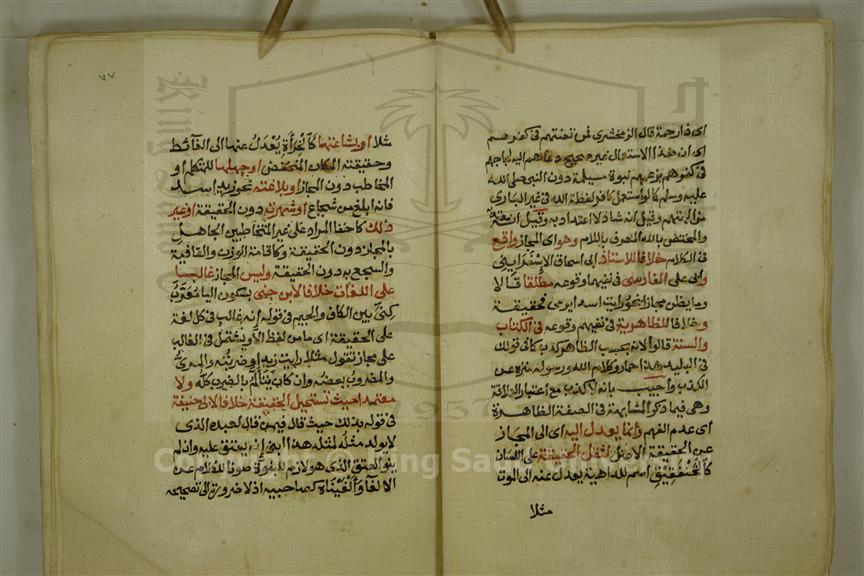 اى ذارحمة قال الزمخشرى فمن تعنتهم فى كفرهم
اى ان هذا الاستعمال غير صحيح دعاهم اليه لجاجهم
فى كفرهم بزعمهم نبوة مسيلمة دون النبى صلى الله
عليه وسلم كما لو استعمل كافر لفظة الله فى غير البارى
من آلهتهم وقيل انه شاذ لا اعتداد به وقيل انه
والمختص بالله المعرف باللام وهو اى المجاز واقع
فى الكلام خلافا للاستاذ ابى اسحاق الاسفراينى
وابى على الفارسى فى نفيهما وقوعه مطلقا قالا
وما يظن مجازا نحو رايت اسدا يرمى فحقيقة
وخلافا للظاهرية فى نفيهم وقوعه فى الكتاب
والسنة قالوا لانه بحسب الظاهر كذب كما فى قولك
فى البليد هذا حمار وكلام الله ورسوله منزه عن
الكذب واجيب بانه لا كذب مع اعتبار العلاقة
وهى فيما ذكر المشابهة فى الصفة الظاهرة
اى عدم الفهم وانما يعدل اليه اى الى المجاز
عن الحقيقة الاصل لثقل الحقيقة على اللسان
كالخنفقيق اسم للداهية يعدل عنه الى الموت
مثلا
٧٧
مثلا او بشاعتها كالخراءة يعدل عنها الى الغائط
وحقيقته المكان المنخفض او جهلها للمتكلم او
المخاطب دون المجاز او بلاغته نحو زيد اسد
فانه ابلغ من شجاع او شهرته دون الحقيقة او غير
ذلك كاخفا المراد على غير المتخاطبين الجاهل
بالمجاز دون الحقيقة وكاقامة الوزن والقافية
والسجع به دون الحقيقة وليس المجاز غالبا
على اللغات خلافا لابن جنى بسكون اليا معرب
كنى بين الكاف والجيم فى قوله انه غالب فى كل لغة
على الحقيقة اى ما من لفظ الا ويشتمل فى الغالب
على مجاز تقول مثلا رايت زيدا وضربته والمرئ
والمضروب بعضه وان كان يتألم بالضرب كله ولا
معتمدا حيث تستحيل الحقيقة خلافا لابى حنيفة
فى قوله بذلك حيث قال فيمن قال لعبده الذى
لا يولد مثله لمثله هذا ابنى انه يعتق عليه وان لم
ينو العتق الذى هو لازم للبنوة صونا للكلام عن
الالغا والغيناه كصاحبيه اذ لا ضرورة الى تصحيحه